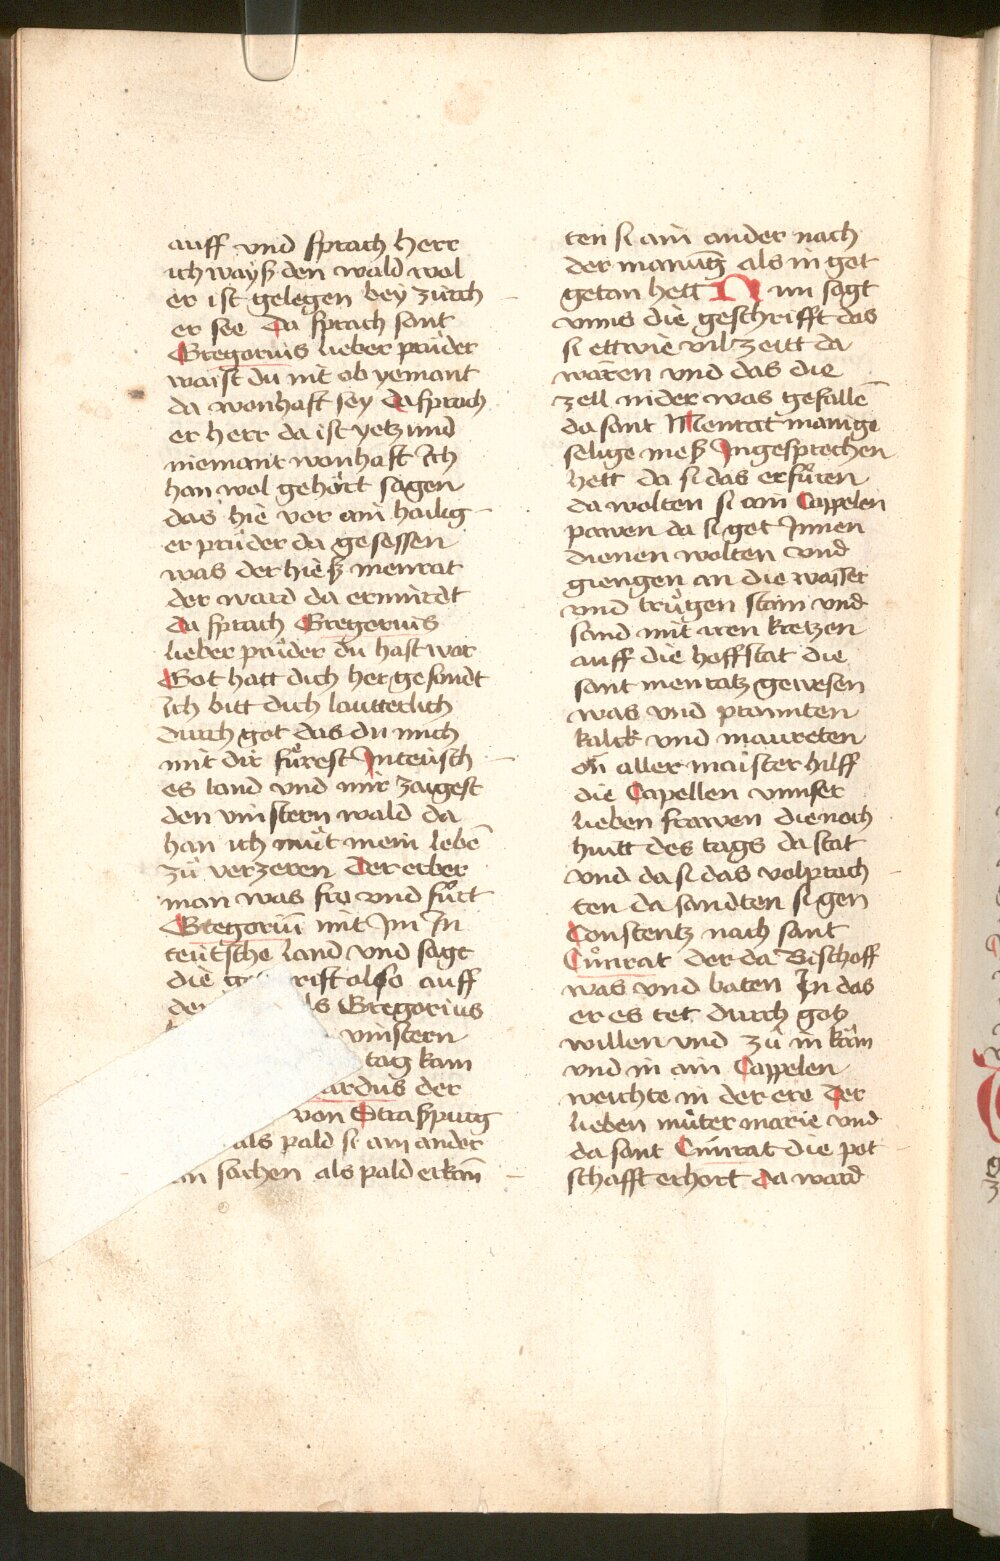 auff vnd sprach herr
ich wayß den wald wol
er ist gelegen bey zürch
er see Da sprach sant
Gregorius lieber prüder
waist du nit ob yemant
da wonhaft sey Da sprach
er herr da ist yetzund
niemant wonhaft Ich
han wol gehört sagen
das hie vor ain hailig
er prüder da gesessen
was der hieß menrat
der ward da ermürdt
Da sprach Gregorius
lieber prüder du hast war
Got hatt dich her gesandt
Ich bitt dich lautterlich
durch got das du mich
mit dir fůrest In teüsch
es land vnd mir zaigest
den vinstern wald da
han ich můt mein lebē
zů verzeren Der erber
man was fro vnd fůrt
Gregoriū mit Im In
teütsche land vnd sagt
die rift also auff
Gregorius
vinstern
tag kam
ardus der
von Straspurg
als pald si am ander
sachen als pald erkan̄
ten si ain ander nach
der manūg als in got
getan hett Nun sagt
vnns die geschrifft das
si ettwie vil zeitt da
waren vnd das die
zell nider was gefallē
da sant Menrat manige
selige meß Ingesprochen
hett da si das erfůren
da wolten si ain Cappelen
pawen da si got Innen
dienen wolten vnd
giengen an die wasser
vnd trůgen stain vnd
sand mit iren kretzen
auff die hoffstat die
sant menratz gewesen
was vnd prannten
kalck vnd maureten
on aller maister hilff
die Capellen vnnser
lieben frawen die noch
hütt des tags da stat
vnd da si das volprach
ten da sandten si gen
Constentz nach sant
Cůnrat der da Bischoff
was vnd baten In das
er es tet durch gotz
willen vnd zů in käm
vnd in ain Cappelen
weichte in der ere Der
lieben müter marie vnd
da sant Cůnrat die pot
schafft erhort Da ward